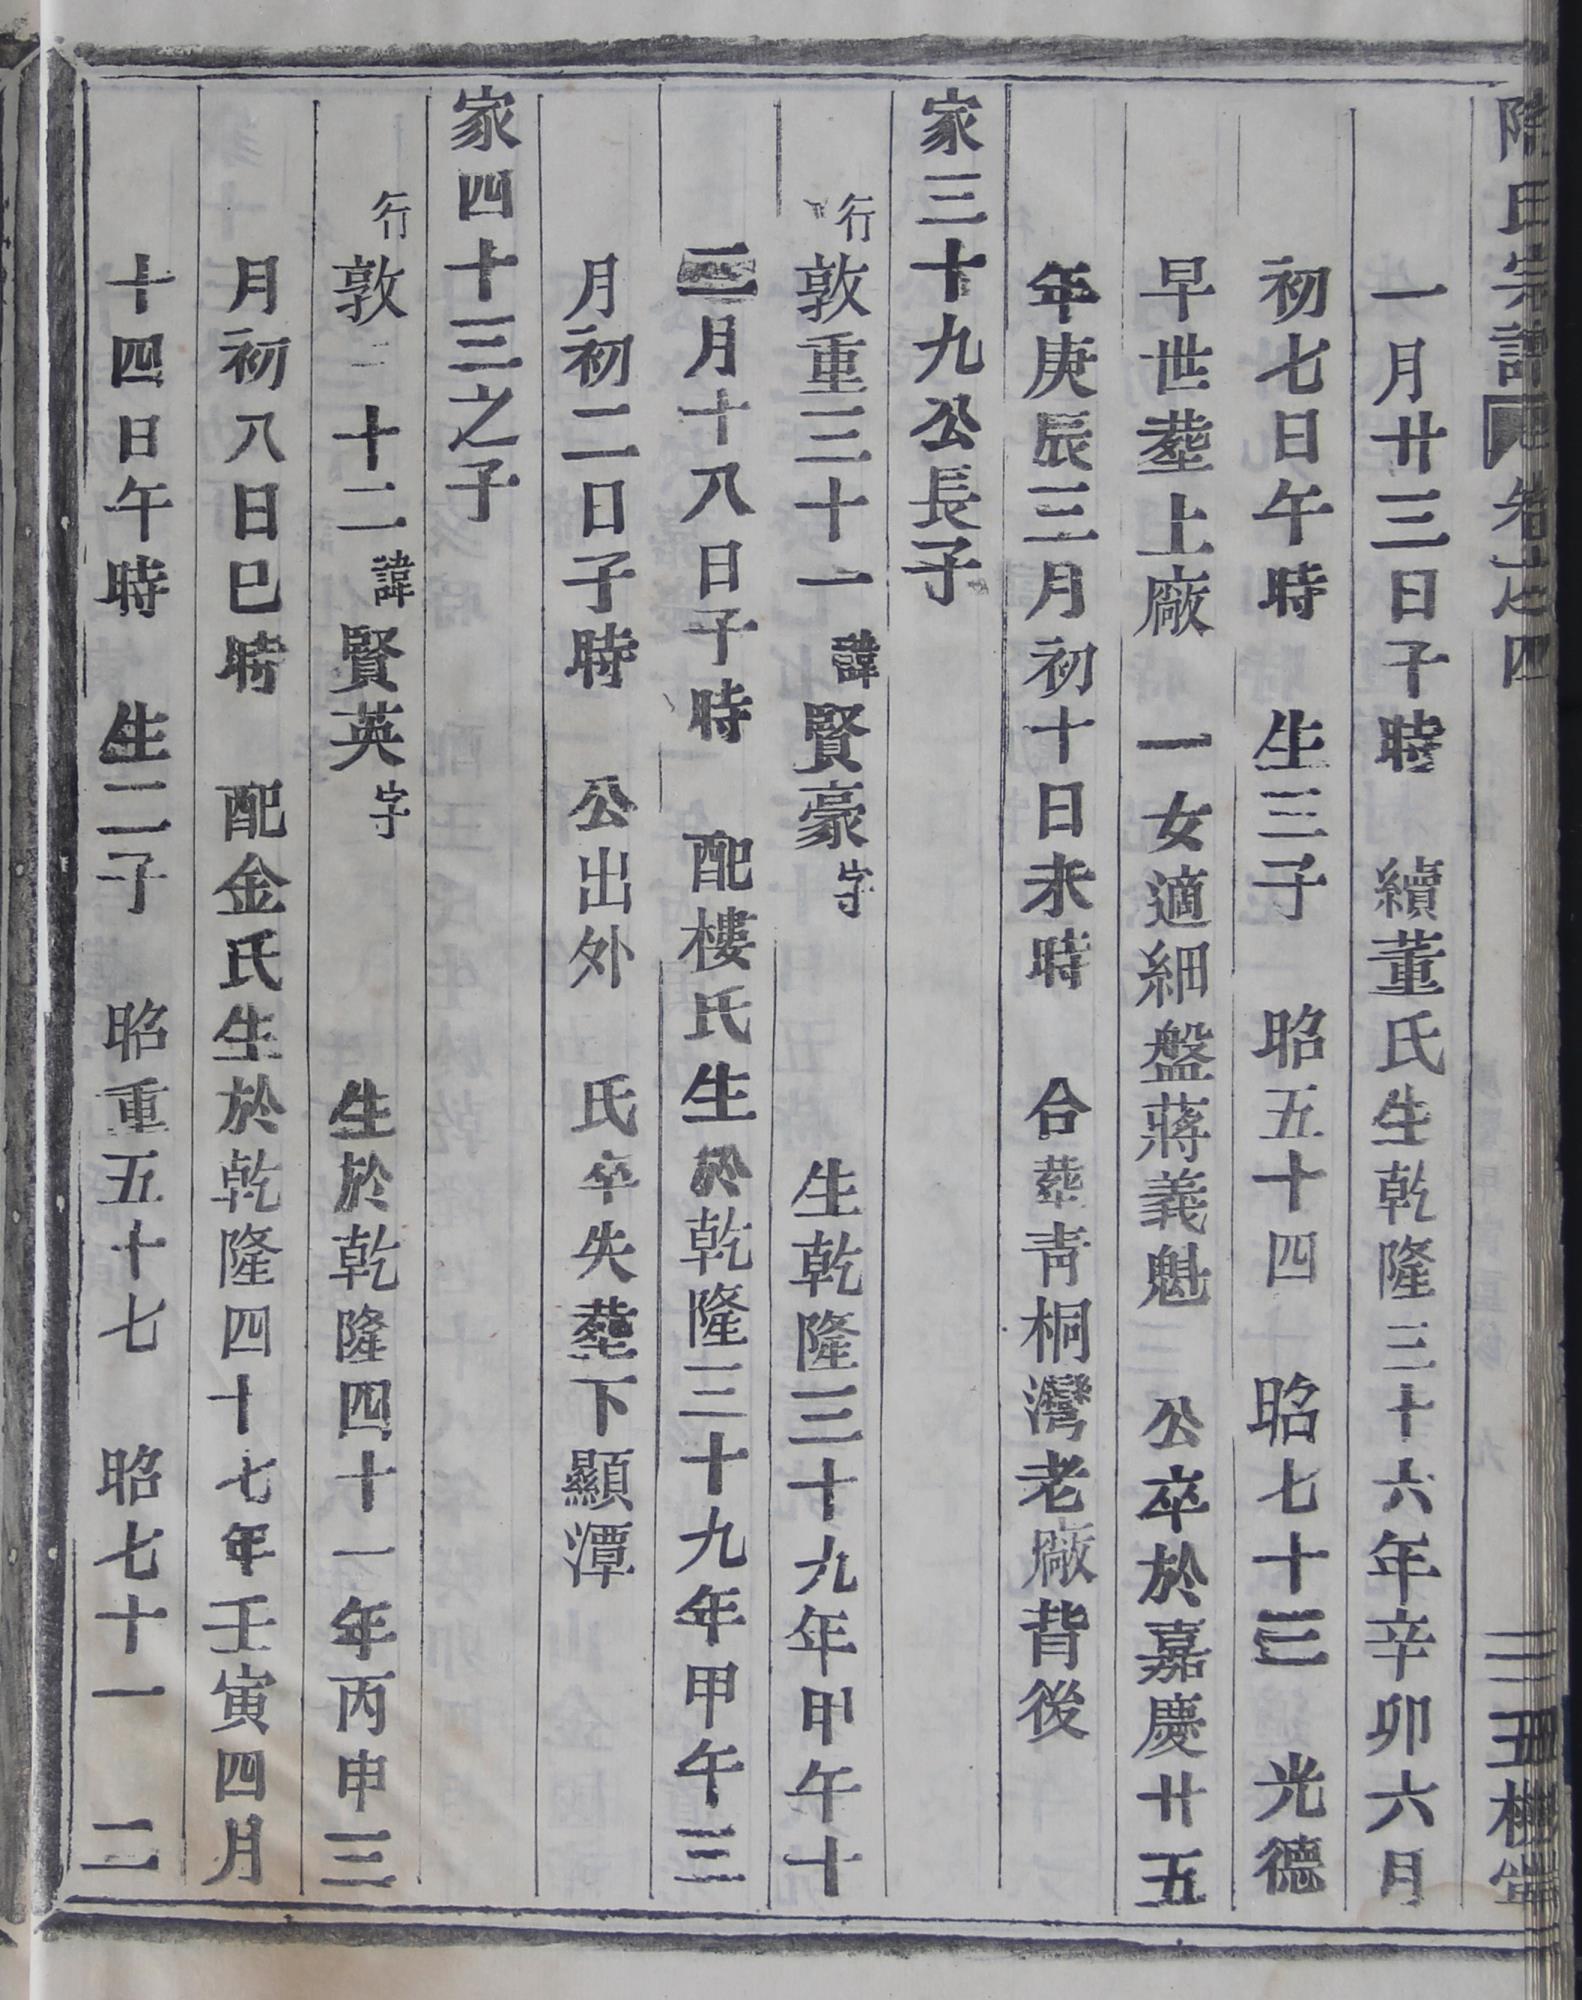 氏宗譜 卷之四 三 五桂堂
一月廿三日子時 續董氏生乾隆三十六年辛卯六月
初七日午時 生三子 昭五十四 昭七十三 光德
早世塟上廠 一女適細盤蔣義魁 公卒於嘉慶廿五
年庚辰三月初十日未時 合塟靑桐灣老廠背後
家三十九公長子
行敦重三十一諱賢豪字 生乾隆三十九年甲午十
二月十八日子時 配樓氏生於乾隆三十九年甲午三
月初二日子時 公出外 氏卒失塟下顯潭
家四十三之子
行敦二十二諱賢英字 生於乾隆四十一年丙申三
月初八日巳時 配金氏生於乾隆四十七年壬寅四月
十四日午時 生二子 昭重五十七 昭七十一 二